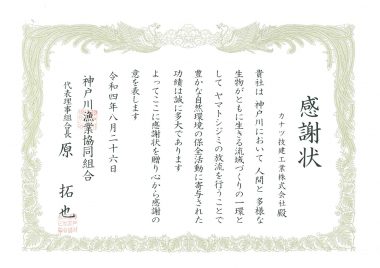 感謝状
カナツ技建工業株式会社 殿
貴社は 神戸川において 人間と 多様な
生物がともに生きる流域づくりの一環と
して ヤマトシジミの放流を行うことで
豊かな自然環境の保全活動に寄与された
功績は誠に多大であります
よってここに感謝状を贈り心から感謝の
意を表します
令和四年八月二十六日
神戸川漁業協同組合
代表理事組合長 原 拓也